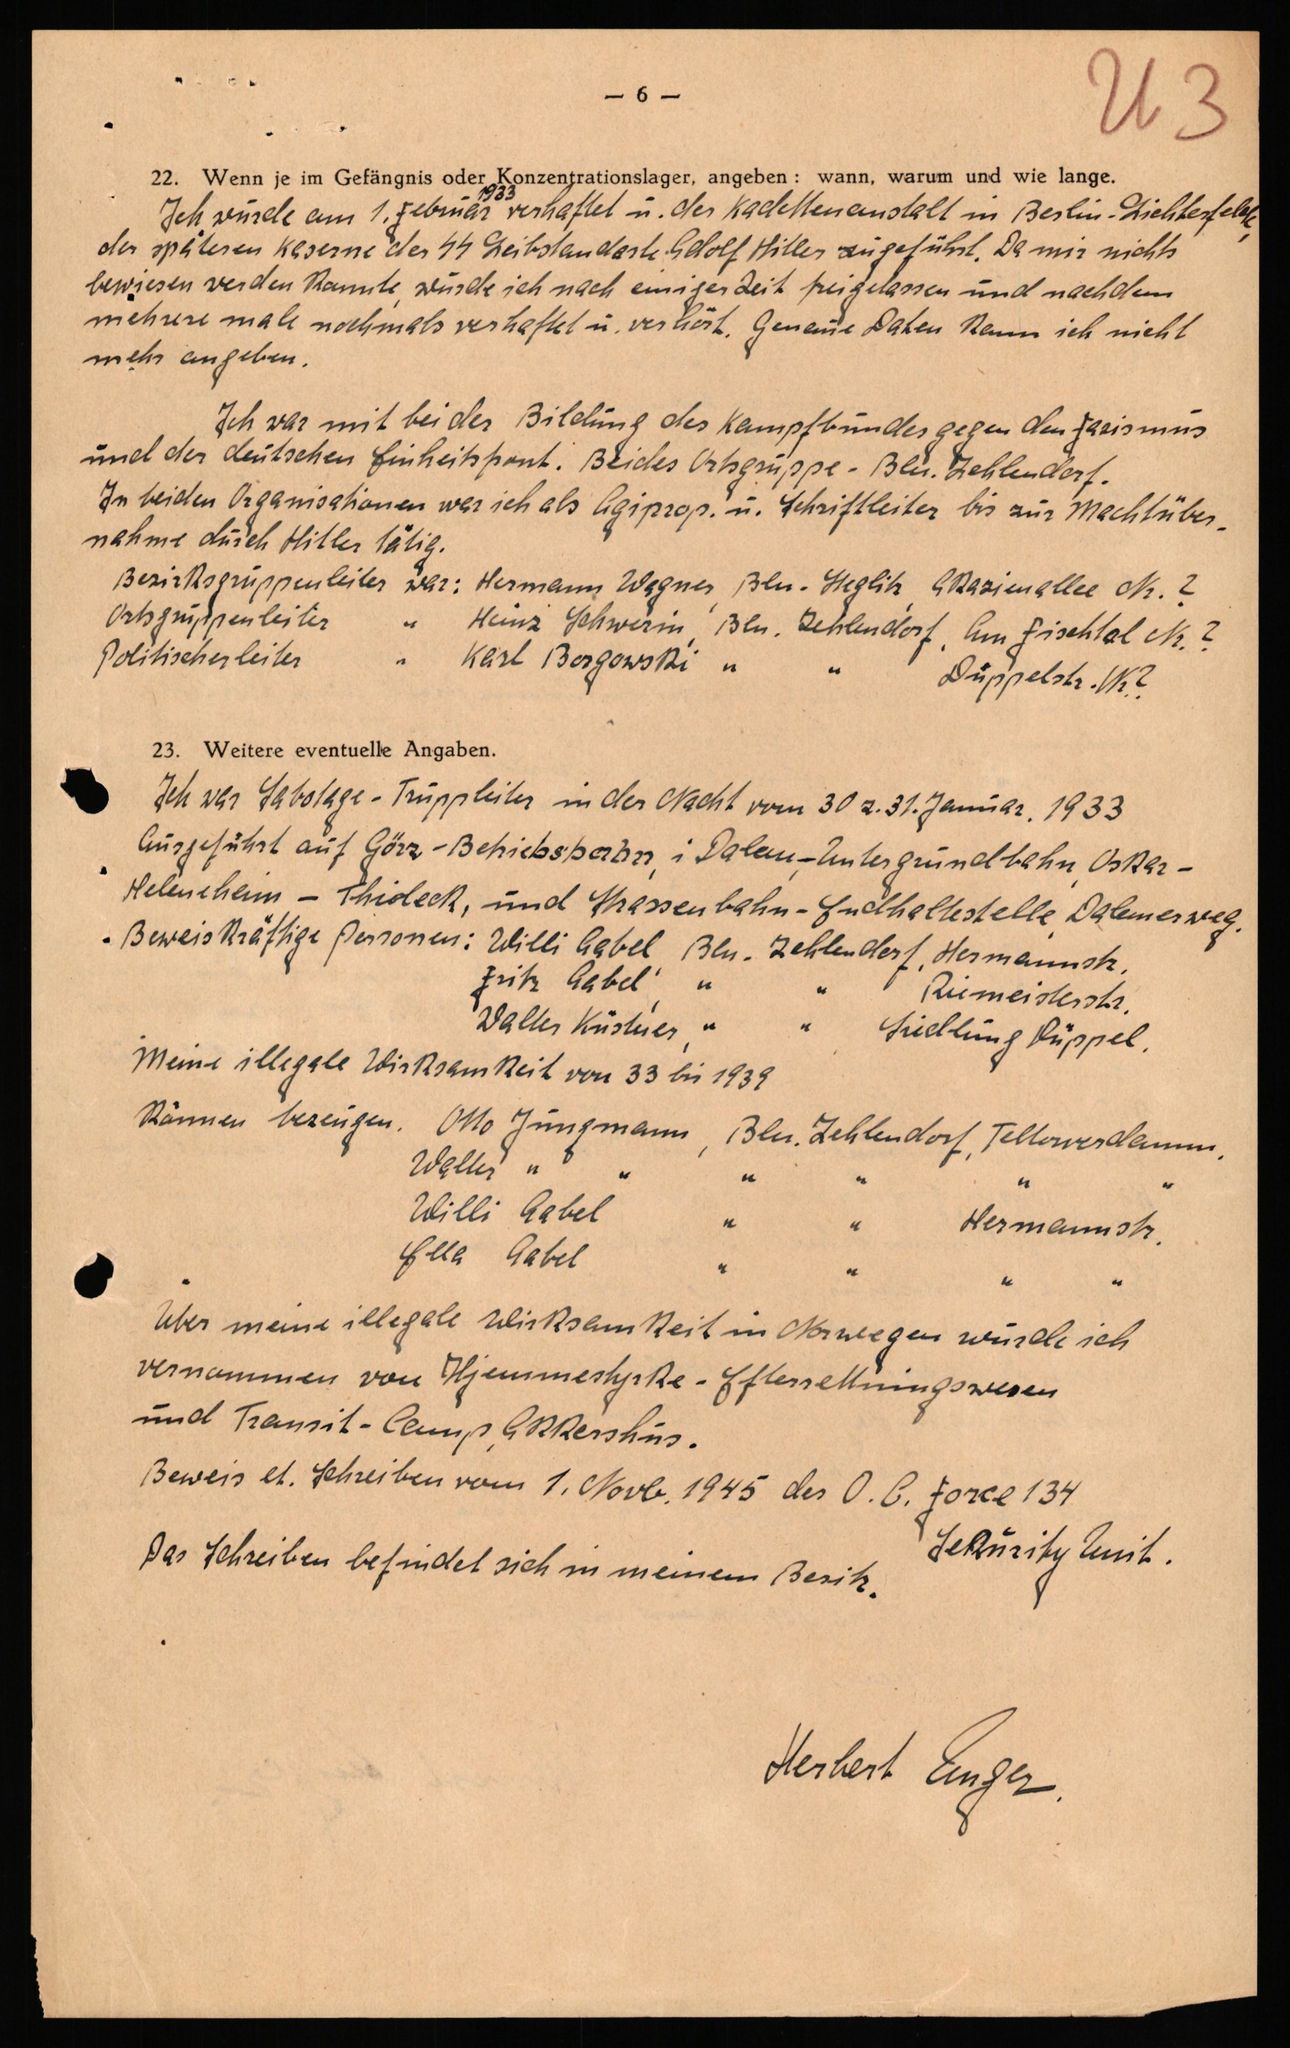 — 6 —
U 3
22. Wenn je im Gefängnis oder Konzentrationslager, angeben: wann, warum und wie lange.
Ich wurde am 1. Februar 1933 verhaftet u. der Kadettenanstalt in Berlin-Lichterfelde,
der späteren Kaserne der SS Leibstandarte Adolf Hitler zugeführt. Da mir nichts
bewiesen werden konnte, wurde ich nach einiger Zeit freigelassen und nachdem
mehrere male nochmals verhaftet u. verhört. Genaue Daten kann ich nicht
mehr angeben.
Ich war mit bei der Bildung des Kampfbundes gegen den Facismus
und der deutschen Einheitsfront. Beides Ortsgruppe - Bln. Zehlendorf.
In beiden Organisationen war ich als Agiprop. u. Schriftleiter bis zur Machtüber-
nahme durch Hitler tätig.
Bezirksgruppenleiter war: Hermann Wagner, Bln. - Steglitz, Akazienallee Nr. ?
Ortsgruppenleiter " Heinz Schwerin, Bln. Zehlendorf, Am Fischtal Nr. ?
Politischerleiter " Karl Borgowski " " Düppelstr. Nr ?
23. Weitere eventuelle Angaben.
Ich war Sabotage - Truppleiter in der Nacht vom 30 z. 31. Januar. 1933
Ausgeführt auf Görz - Betriebsbahn, i Dalem, - Untergrundbahn, Oskar -
Heleneheim - Thieleck, und Strassenbahn - Endhaltestelle, Dalemerweg.
Beweiskräftige Personen: Willi Gabel, Bln. Zehlendorf, Hermannstr.
Fritz Gabel, " " Riemeisterstr.
Walter Küstner, " " Siedlung Düppel.
Meine illegale Wirksamkeit von 33 bis 1939
können bezeugen. Otto Jungmann, Bln. Zehlendorf, Teltowerdamm.
Walter " " " " " "
Willi Gabel " " Hermannstr.
Ella Gabel " " " "
Über meine illegale Wirksamkeit in Norwegen wurde ich
vernommen von Hjemmestyrke - Efterrettningswesen
und Transit - Camp, Akkershus.
Beweis lt. Schreiben vom 1. Novb. 1945 der O. C. Force 134
Sekurity Unit.
Das Schreiben befindet sich in meinem Besitz.
Herbert Unger.